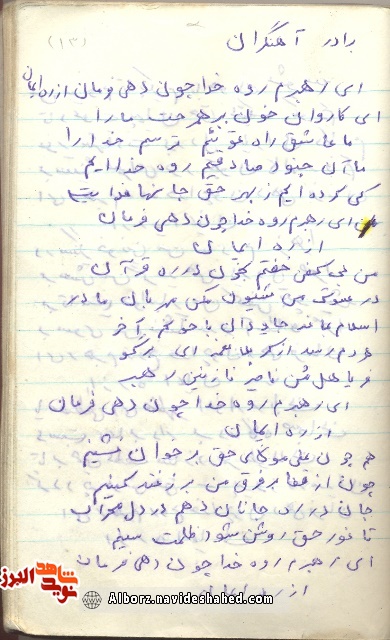 (۱۳)
برادر آهنگران
ای رهبرم روح خدا چون دهی فرمان از ره ایمان
ای کاروان خون بر هم زحمت ما را
ما عاشق راه توئیم ترسم خدا را
ما آن جنود صادقیم روح خدا ایم
کی کرده ایم ز بهر حق جانها فدایت
ای رهبرم روح خدا چون دهی فرمان
از ره ایمان
من غم کفن خفتم بخون در ره قرآن
در سوگ من شیون مکن مهربان مادر
اسلام ماند جاودان با خونم آخر
هر دم رسد از کربلا نغمه ای برگو
فریاد هل من ناصر نازنین رهبر
ای رهبرم روح خدا چون دهی فرمان
از ره ایمان
هم چون علی مولای حق بر خوان نشینم
چون از قفا بر فرق من برزنند کمینم
جان در ره جانان دهم در دل محراب
تا نور حق روشن شود ظلمت
ای رهبرم روح خدا چون دهی فرمان
از ره ایمان
شاهد
نوید البرز
Alborz.navideshahed.com